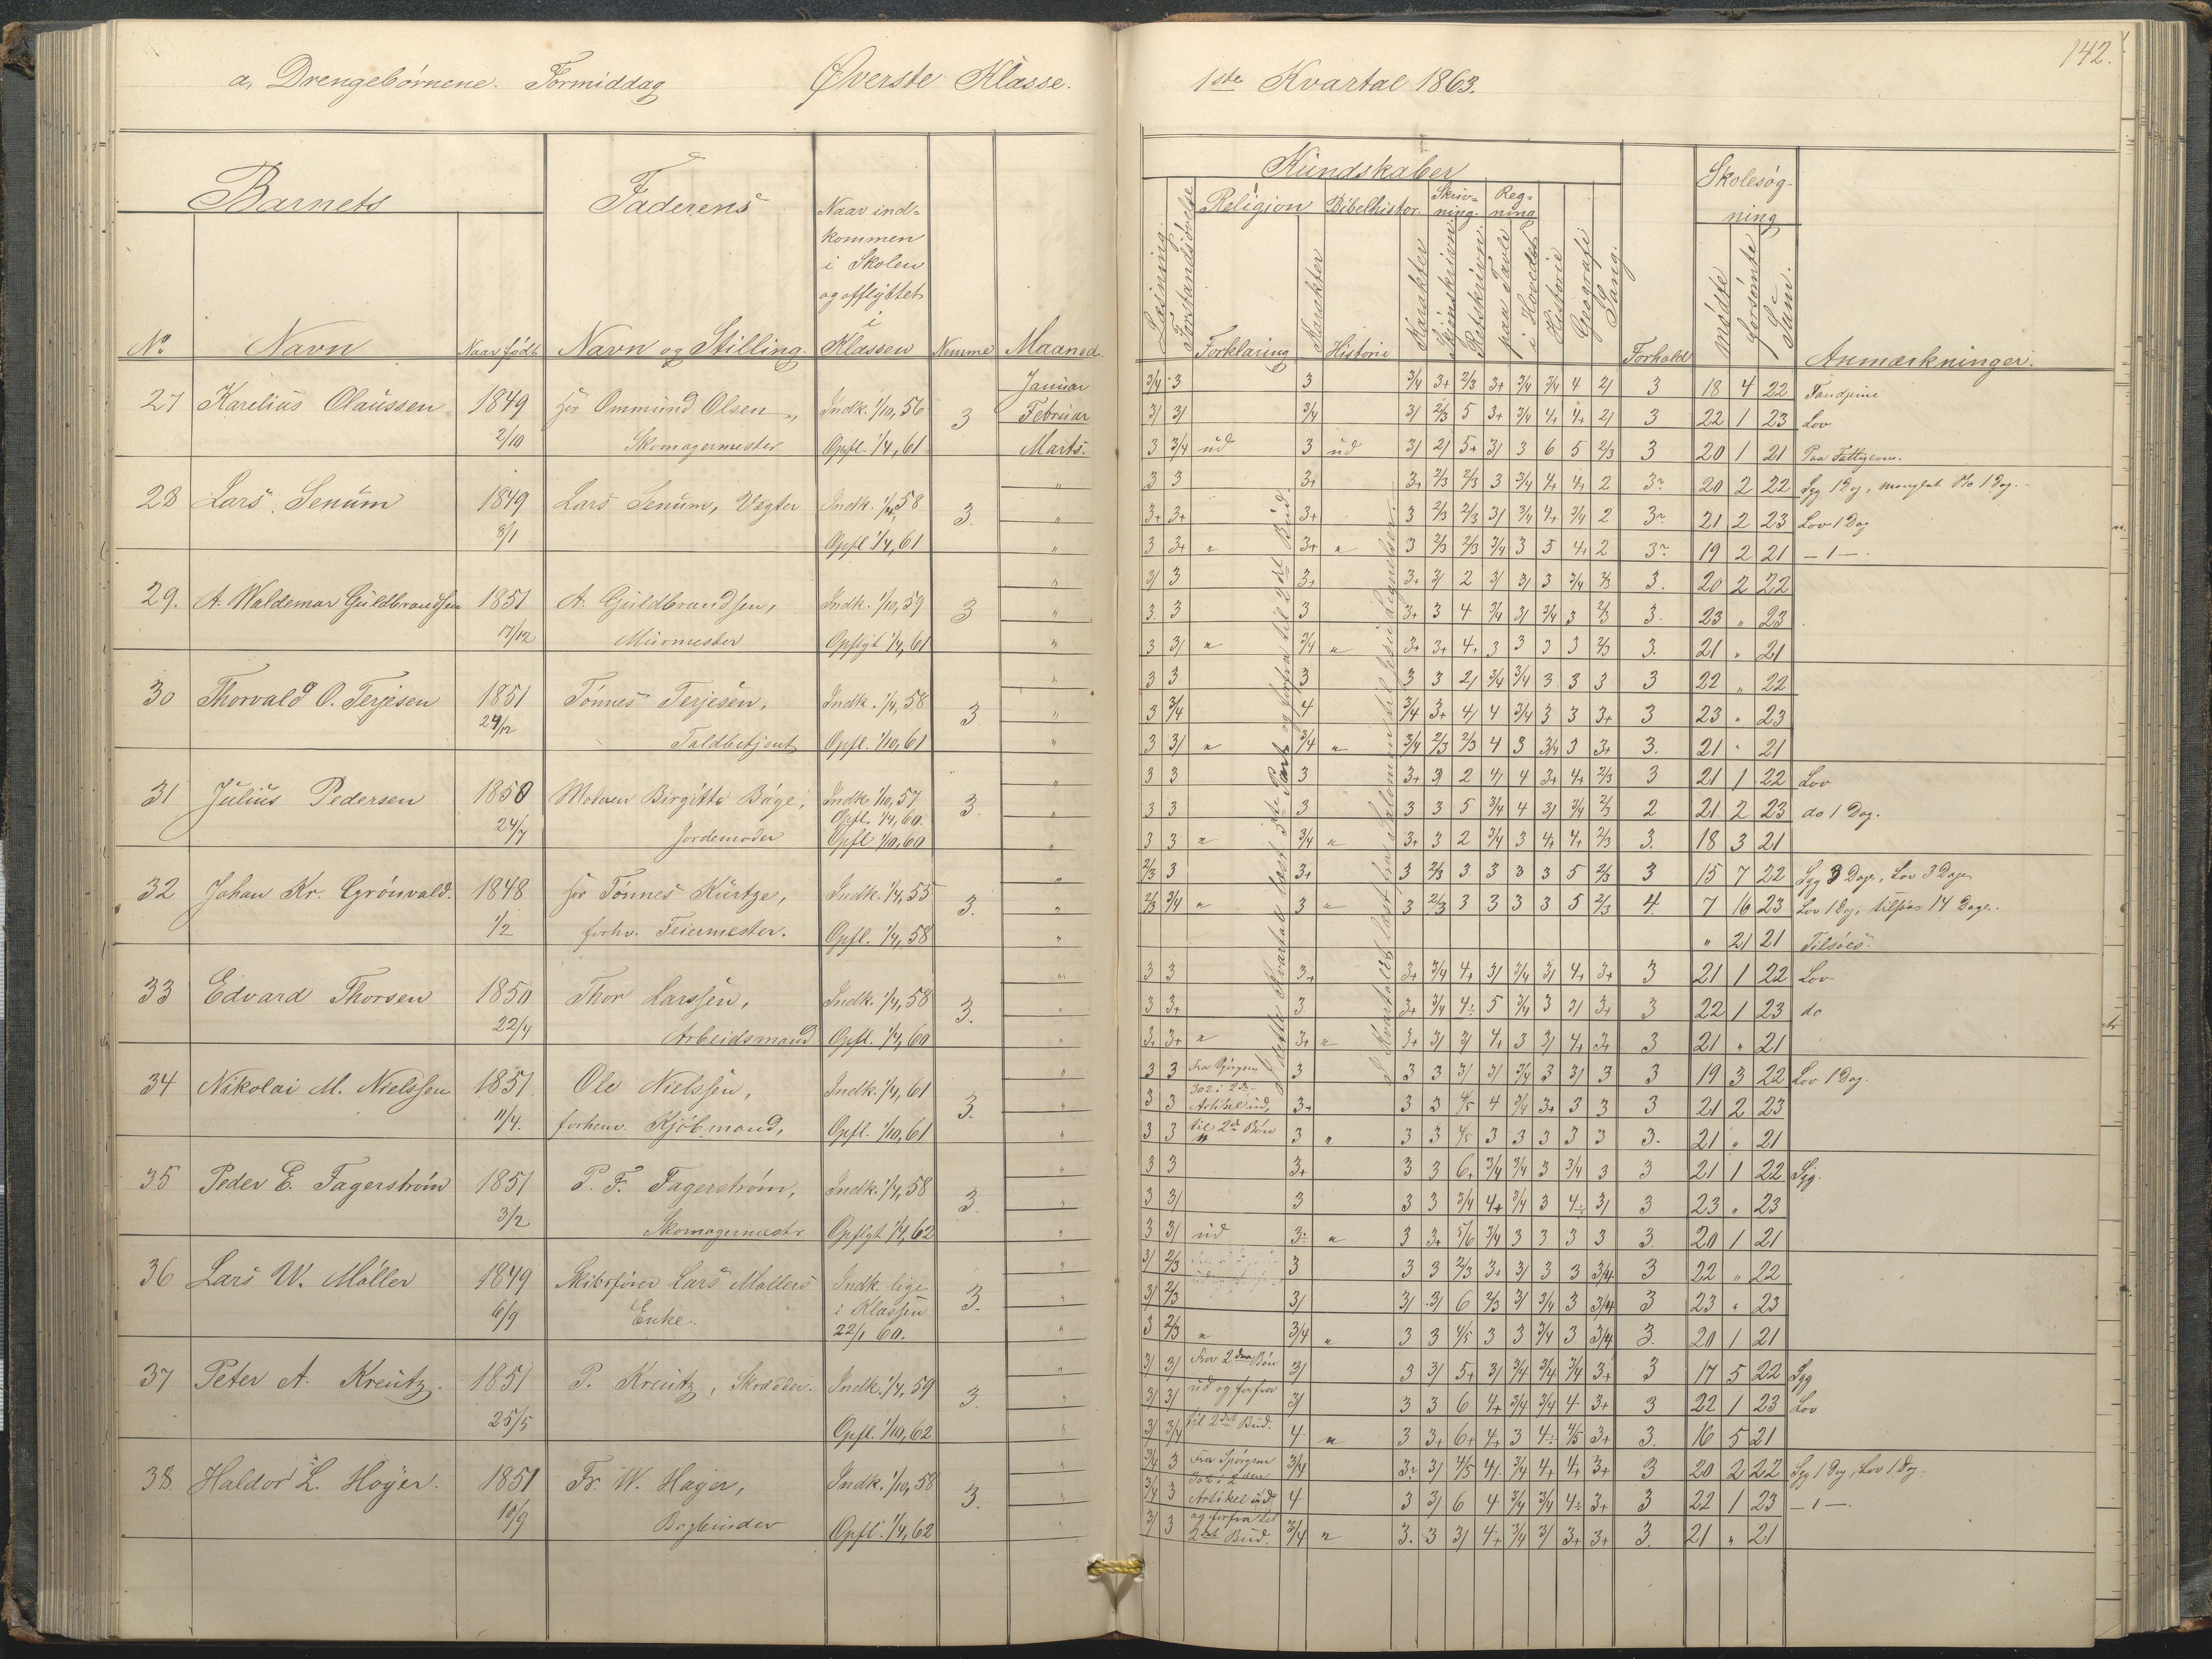 142.
a, Drengebørnene. Formiddag Øverste Klasse. 1ste Kvartal 1863.
Barnets Faderens Naar ind=
kommen
i Skolen
og opflyttet
i
Klassen
No Navn Naar født Navn og Stilling. Nemme Maaned.
Kundskaber
Læsning Forstandsøvelse Religion Bibelhistor. Skriv=
ning. Reg=
ning
Forklaring Karakter Historie Karakter Skjønskrivn. Retskrivn. paa Tavle i Hovedet Historie Geografi Sang.
Forhold
Skolesøg-
ning
mødte forsømte Sum.
Anmærkninger.
27 Karelius Olaussen 1849 Ommund Olsen Indk. 1/10, 56 3 Januar
2/10 Skomagermester Opfl. 1/4, 61 Februar
Marts.
3/4 3 3 3/4 3+ 2/3 3+ 3/4 3/4 4 2/ 3 18 4 22 Tandpine
3/ 3/ 3/4 3/ 2/3 5 3+ 3/4 4+ 4+ 2/ 3 22 1 23 Lov
3 3/4 ud 3 ud 3/ 2/ 5+ 3/ 3 6 5 2/3 3 20 1 21
28 Lars Senum 1849 Lars Senum, Vægter Indk. 1/4, 58 3.
8/1 Opfl 1/4, 61
3 3 3+ 3+ 2/3 2/3 3 3/4 4+ 4+ 2 20 2 22 Syg 1 Dag,
3+ 3+ 3+ 3 2/3 2/3 3/ 3/4 4+ 3/4 2 21 2 23 Lov 1 Dag
3 3+ " 3+ " 3 2/3 2/3 3/4 3 5 4+ 2 19 2 21 – 1 –
29. A. Waldemar Guldbrandsen 1851 A. Guldbrandsen, Indk. 1/10, 59 3
17/12 Murmester Opflyt 1/4, 61
3/ 3 3+ 3+ 3/ 2 3/ 3/ 3 3/4 2/3 3. 20 2 22
3 3 3 3+ 3 4 3/4 3/ 3/4 3 2/3 3. 23 " 23
3 3/ " 3/4 " 3+ 3+ 4+ 3 3 3 3 2/3 3. 21 " 21
30 Thorvald O. Terjesen 1851 Tønnes Terjesen, Indk. 1/4, 58 3
24/12 Toldbetjent Opfl. 1/10, 61
3 3 3 3 3 2/ 3/4 3/4 3 3 3 3 22 " 22
3 3/4 4 3/4 3+ 4/ 4 3/4 3 3 3+ 3 23 " 23
3 3/ " 3/4 " 3/4 2/3 2/3 4 3 3/4 3 3+ 3. 21 " 21
31 Julius Pedersen 1850 Moderen Birgitte Bøge, Indk. 1/10, 57 3.
24/7 Jordemoder Opfl. 1/4, 60.
Opfl 1/10, 60
3 3 3 3+ 3/ 2 4/ 4 3+ 4+ 2/3 3 21 1 22 Lov
3 3 3 3 3 5 3/4 4 3/ 3/4 2/3 2 21 2 23 do 1 Dag.
3 3 " 3/4 " 3+ 3 2 3/4 3 4+ 4+ 2/3 3. 18 3 21
32 Johan Kr. Grønvald. 1848 Tønnes Kürtze, Indk. 1/4, 55 3.
1/2 forhv. Feiermester. Opfl. 1/4, 58
2/3 3 3+ 3 2/3 3 3 3 3 5 2/3 3 15 7 22 Syg 3 Dage, Lov 3 Dage
2/3 3/4 " 3 " 3 2/3 3 3 3 3 5 2/3 4. 7 16 23 Lov 1 Dag, tilsøes 14 Dage.
" 21 21 Tilsøes.
33 Edvard Thorsen 1850 Thor Larssen, Indk. 1/4, 58 3.
22/4 Arbeidsmand Opfl. 1/4, 60
3 3 3+ 3+ 3/4 4+ 3/ 3/4 3/ 4+ 3+ 3 21 1 22 Lov
3 3+ 3 3+ 3/4 4÷ 5 3/4 3 3/ 3+ 3 22 1 23 do
3+ 3+ " 3+ " 3+ 3/ 3/ 4+ 3 3/ 4+ 3+ 3 21 " 21
34 Nikolai M. Nielssen 1851 Ole Nielssen, Indk. 1/4, 61 3.
11/4. forhenv. Kjøbmand, Opfl. 1/10, 61
3 3 Fra Spørgsm 3 3 3 3/ 3/ 3/4 3 3/ 3 3 19 3 22 Lov 1 Dag.
302 i 2den
3 3 Artikel ud, 3+ 3 3 4/5 4 3/4 3+ 3 3 3 21 2 23
3 3 til 2de Bøn 3 " 3 3 4/5 3 3 3 3 3 3. 21 " 21
35 Peder E. Fagerstrøm 1851 P. F. Fagerstrøm, Indk. 1/4, 58 3.
3/2 Skomagermestr Opflyt 1/4, 62
3 3 3+ 3 3 6+ 3/4 3/4 3 3/4 3 3 21 1 22 Syg.
3 3/ 3 3 3 3/4 4+ 3/4 3 4÷ 3/ 3 23 " 23
3 3/ ud 3÷ " 3 3+ 5/6 3/4 3 3 3 3 3. 20 1 21
36 Lars W. Møller 1849 Skibsfører Lars Møllers Indk. lige 3.
6/9 Enke. i Klassen
22/1 60.
3/ 2/3 3 3 3 2/3 3+ 3/ 3 3 3/4 3 22 " 22
3/ 2/3 3/ 3/ 3/ 6 2/3 3/ 3/4 3 3/4 3 23 " 23
3 2/3 " 3/4 " 3 3 4/5 3 3 3/4 3 3/4 3. 20 1 21
37 Peter A. Kreutz. 1851 P. Kreutz, Skrædder. Indk. 1/4, 59 3.
25/5 Opfl. 1/10, 62
3/ 3/ Fra 2den Bøn 3/ 3 3/ 5+ 3/ 3/4 3/4 3/4 3+ 3 17 5 22 Syg
3/ 3/ ud og forfra 3/ 3 3 6 4+ 3/4 3/4 4 3+ 3 22 1 23 Lov
3/ 3/4 til 2det Bud. 4 " 3 3+ 6+ 4+ 3 4÷ 4/5 3+ 3. 16 5 21
38. Haldor L. Høyer. 1851 Fr. W. Høyer, Indk. 1/10, 58 3.
10/9 Bogbinder Opfl. 1/4, 62
3/4 3 Fra Spørgsm 3/4 3/ 4/5 4/ 3/4 4+ 4+ 3+ 3 20 2 22 Syg 1 Dag, Lov 1 Dag.
302 i 2den
3/4 3 Artikel ud 4 3 3/ 6 4 3/4 3/4 4÷ 3+ 3 22 1 23 – 1 –
og forfra til
3/ 3 2det Bud. 3/4 " 3. 3 3/ 4+ 3/4 3/ 3+ 3+ 3. 21 " 21
I dette Kvartal læst 3die Part og forfra til 2det Bud.
I Kvartalet læst fra Salomon til Jesu Lignelser.